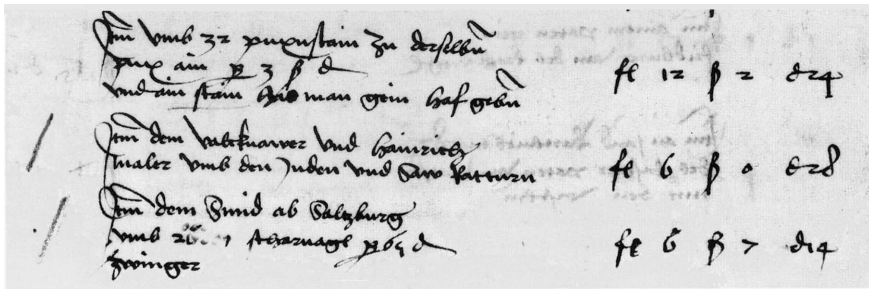 Itm̃ vmb 32 puxnstain zu derselbñ
pux ain p 3 ß d
und ain stain hat man gein haf gebñ fl 12 ß 2 d 24
Itm̃ dem valcknawer und hainrich
maler vmb den Juden und Saw katturn fl 6 ß 0 d 28
Itm̃ dem Smid ab Saltzburg
vmb scharnagl p d fl 6 ß 7 d 14
zwinger